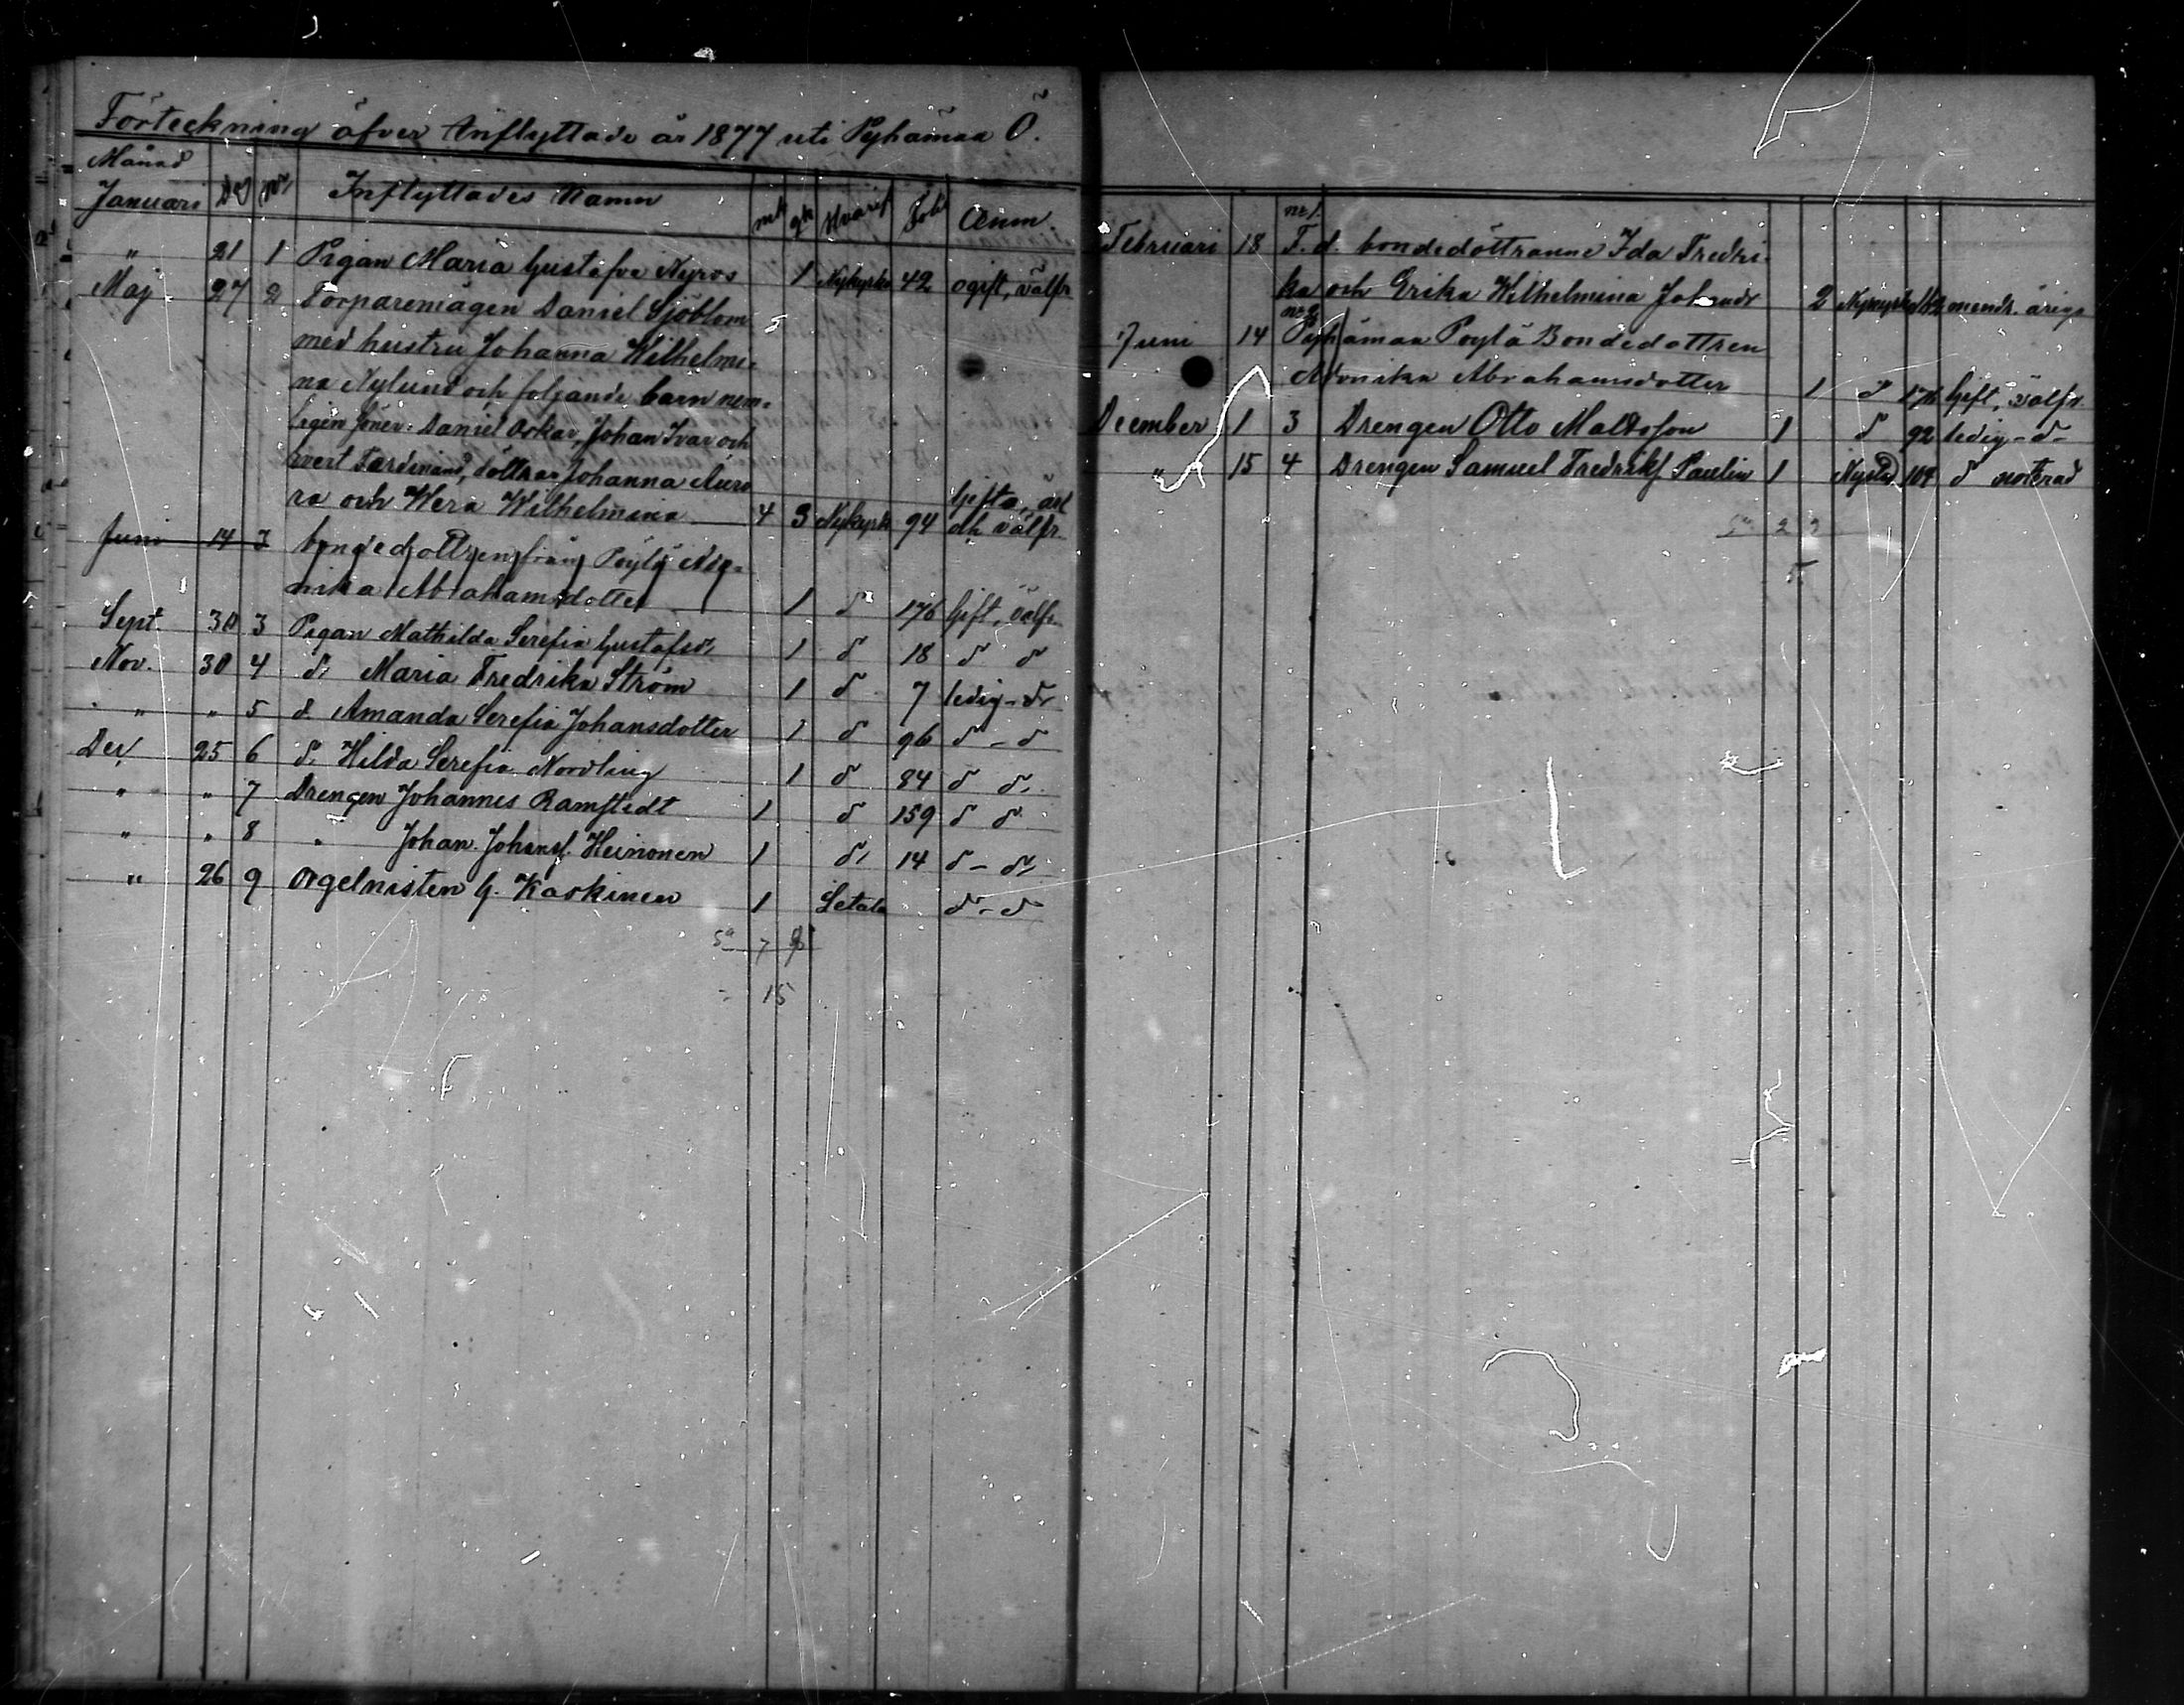 Förteckning öfver Inflyttade år 1877 uti Pyhämaa Ö.
Månad
Januari Dag Nr Inflyttades Namn mk qk Hvarif. Foli Anm.
" 21 1 Pigan Maria Gustafva Nyros 1 Nykyrko 42 ogift, välfr
Maj 27 2 Torparemågen Daniel Sjöblom
med hustru Johanna Wilhelmi-
na Nylund och följande barn nem-
ligen söner: Daniel Oskar, Johan Ivar och
Ferdinand, döttrar Johanna Auro
ra och Wera Wilhelmina 4 3 Nykyrk 94 Gifta, välfr.
Juni 14 3 bondedottren från Pöytä Mo-
nika Abrahamsdotter 1 d 176 Gift, välfr
Sept. 30 3 Pigan Mathilda Serefia Gustafsd. 1 d 18 d d
Nov. 30 4 d. Maria Fredrika Ström 1 d 7 ledig - d
" " 5 d. Amanda Serefia Johansdotter 1 d 96 d - d
Dec. 25 6 d. Hilda Serefia Nordling 1 d 84 d d.
" " 7 Drengen Johannes Ramstedt 1 d 159 d d
" " 8 " Johan Johansf. Heinonen 1 d. 14 d - d.
" 26 9 Orgelnisten G. Kaskinen 1 Letala d - d
Sa 7 8
= 15
Februari 18 nr 1. F. d. bondedöttranne Ida Fredri-
ka och Erika Wilhelmina Johansdr 2 Nykyrko mindr. åriga
Juni 14 Pyhämaa Poytä Bondedottren
Monika Abrahamsdotter 1 d 176 Gift, välfr.
December 1 3 Drengen Otto Mattsson 1 d 92 ledig - d -
" 15 4 Drengen Samuel Fredriksf Paulin 1 Nystad 104 d noterad
Sa 2 3
5